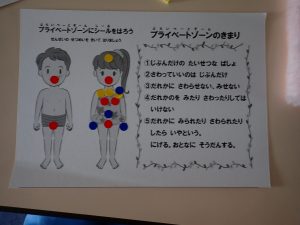 プライベートゾーンにシールをはろう
せんせいの せつめいを きいて はりましょう
プライベートゾーンのきまり
①じぶんだけの たいせつな ばしょ
②さわっていいのは じぶんだけ
③だれかに さわらせない、みせない
④だれかのを みたり さわったりしては
いけない
⑤だれかに みられたり さわられたり
したら いやという。
にげる。おとなに そうだんする。